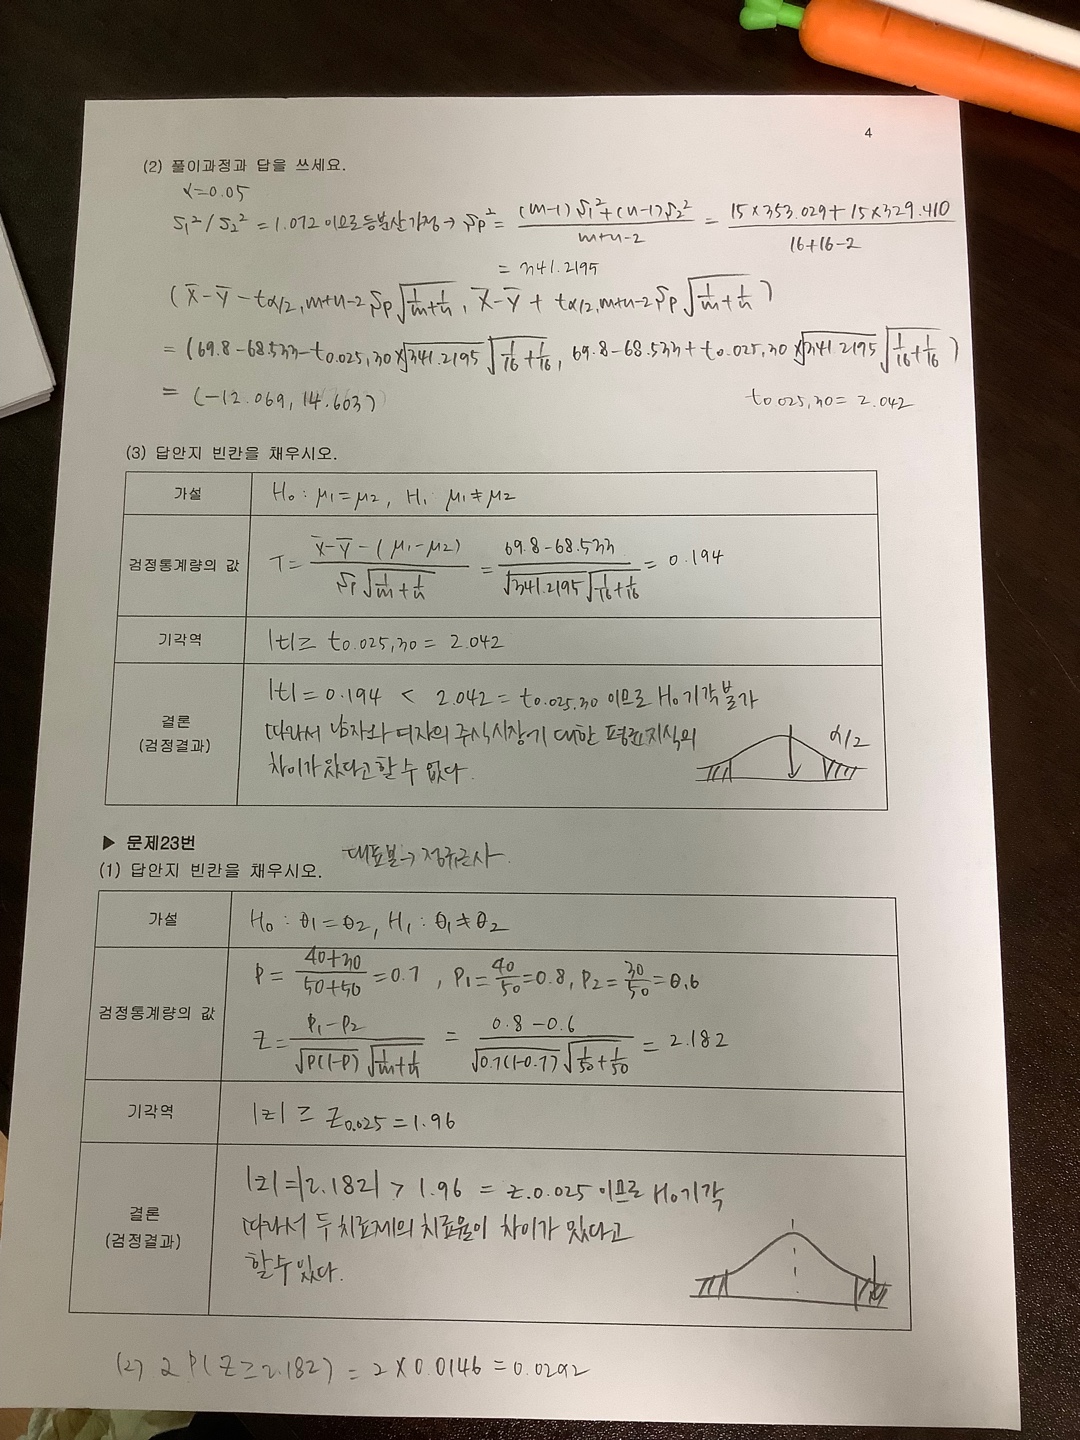 4
(2) 풀이과정과 답을 쓰세요.
α=0.05
S₁²/S₂² = 1.072 이므로 등분산 가정 → Sp² = (m-1)S₁²+(n-1)S₂² / m+n-2 = 15×353.029+15×329.410 / 16+16-2
= 341.2195
(X̄-Ȳ-tα/2,m+n-2 Sp√(1/m+1/n), X̄-Ȳ+tα/2,m+n-2 Sp√(1/m+1/n))
= (69.8-68.533-t0.025,30×√341.2195 √(1/16+1/16), 69.8-68.533+t0.025,30×√341.2195 √(1/16+1/16))
= (-12.069, 14.603) t0.025,30 = 2.042
(3) 답안지 빈칸을 채우시오.
가설 H₀ : μ₁=μ₂, H₁ μ₁≠μ₂
검정통계량의 값 T = X̄-Ȳ-(μ₁-μ₂) / Sp√(1/m+1/n) = 69.8-68.533 / √341.2195 √(1/16+1/16) = 0.194
기각역 |t| ≥ t0.025,30 = 2.042
결론
(검정결과)
|t| = 0.194 < 2.042 = t0.025,30 이므로 H₀ 기각불가
따라서 남자와 여자의 주식시장에 대한 평균지식의
차이가 있다고 할 수 없다.
α/2
▶ 문제23번
대표본 → 정규근사.
(1) 답안지 빈칸을 채우시오.
가설 H₀ : θ₁=θ₂, H₁ : θ₁≠θ₂
검정통계량의 값
P = 40+30 / 50+50 = 0.7, P₁ = 40/50 = 0.8, P₂ = 30/50 = 0.6
Z = P₁-P₂ / √P(1-P) √(1/m+1/n) = 0.8-0.6 / √0.7(1-0.7) √(1/50+1/50) = 2.182
기각역 |z| ≥ Z0.025 = 1.96
결론
(검정결과)
|z| = |2.182| > 1.96 = z.0.025 이므로 H₀ 기각
따라서 두 치료제의 치료율이 차이가 있다고
할 수 있다.
(2) 2 P(Z ≥ 2.182) = 2×0.0146 = 0.0292